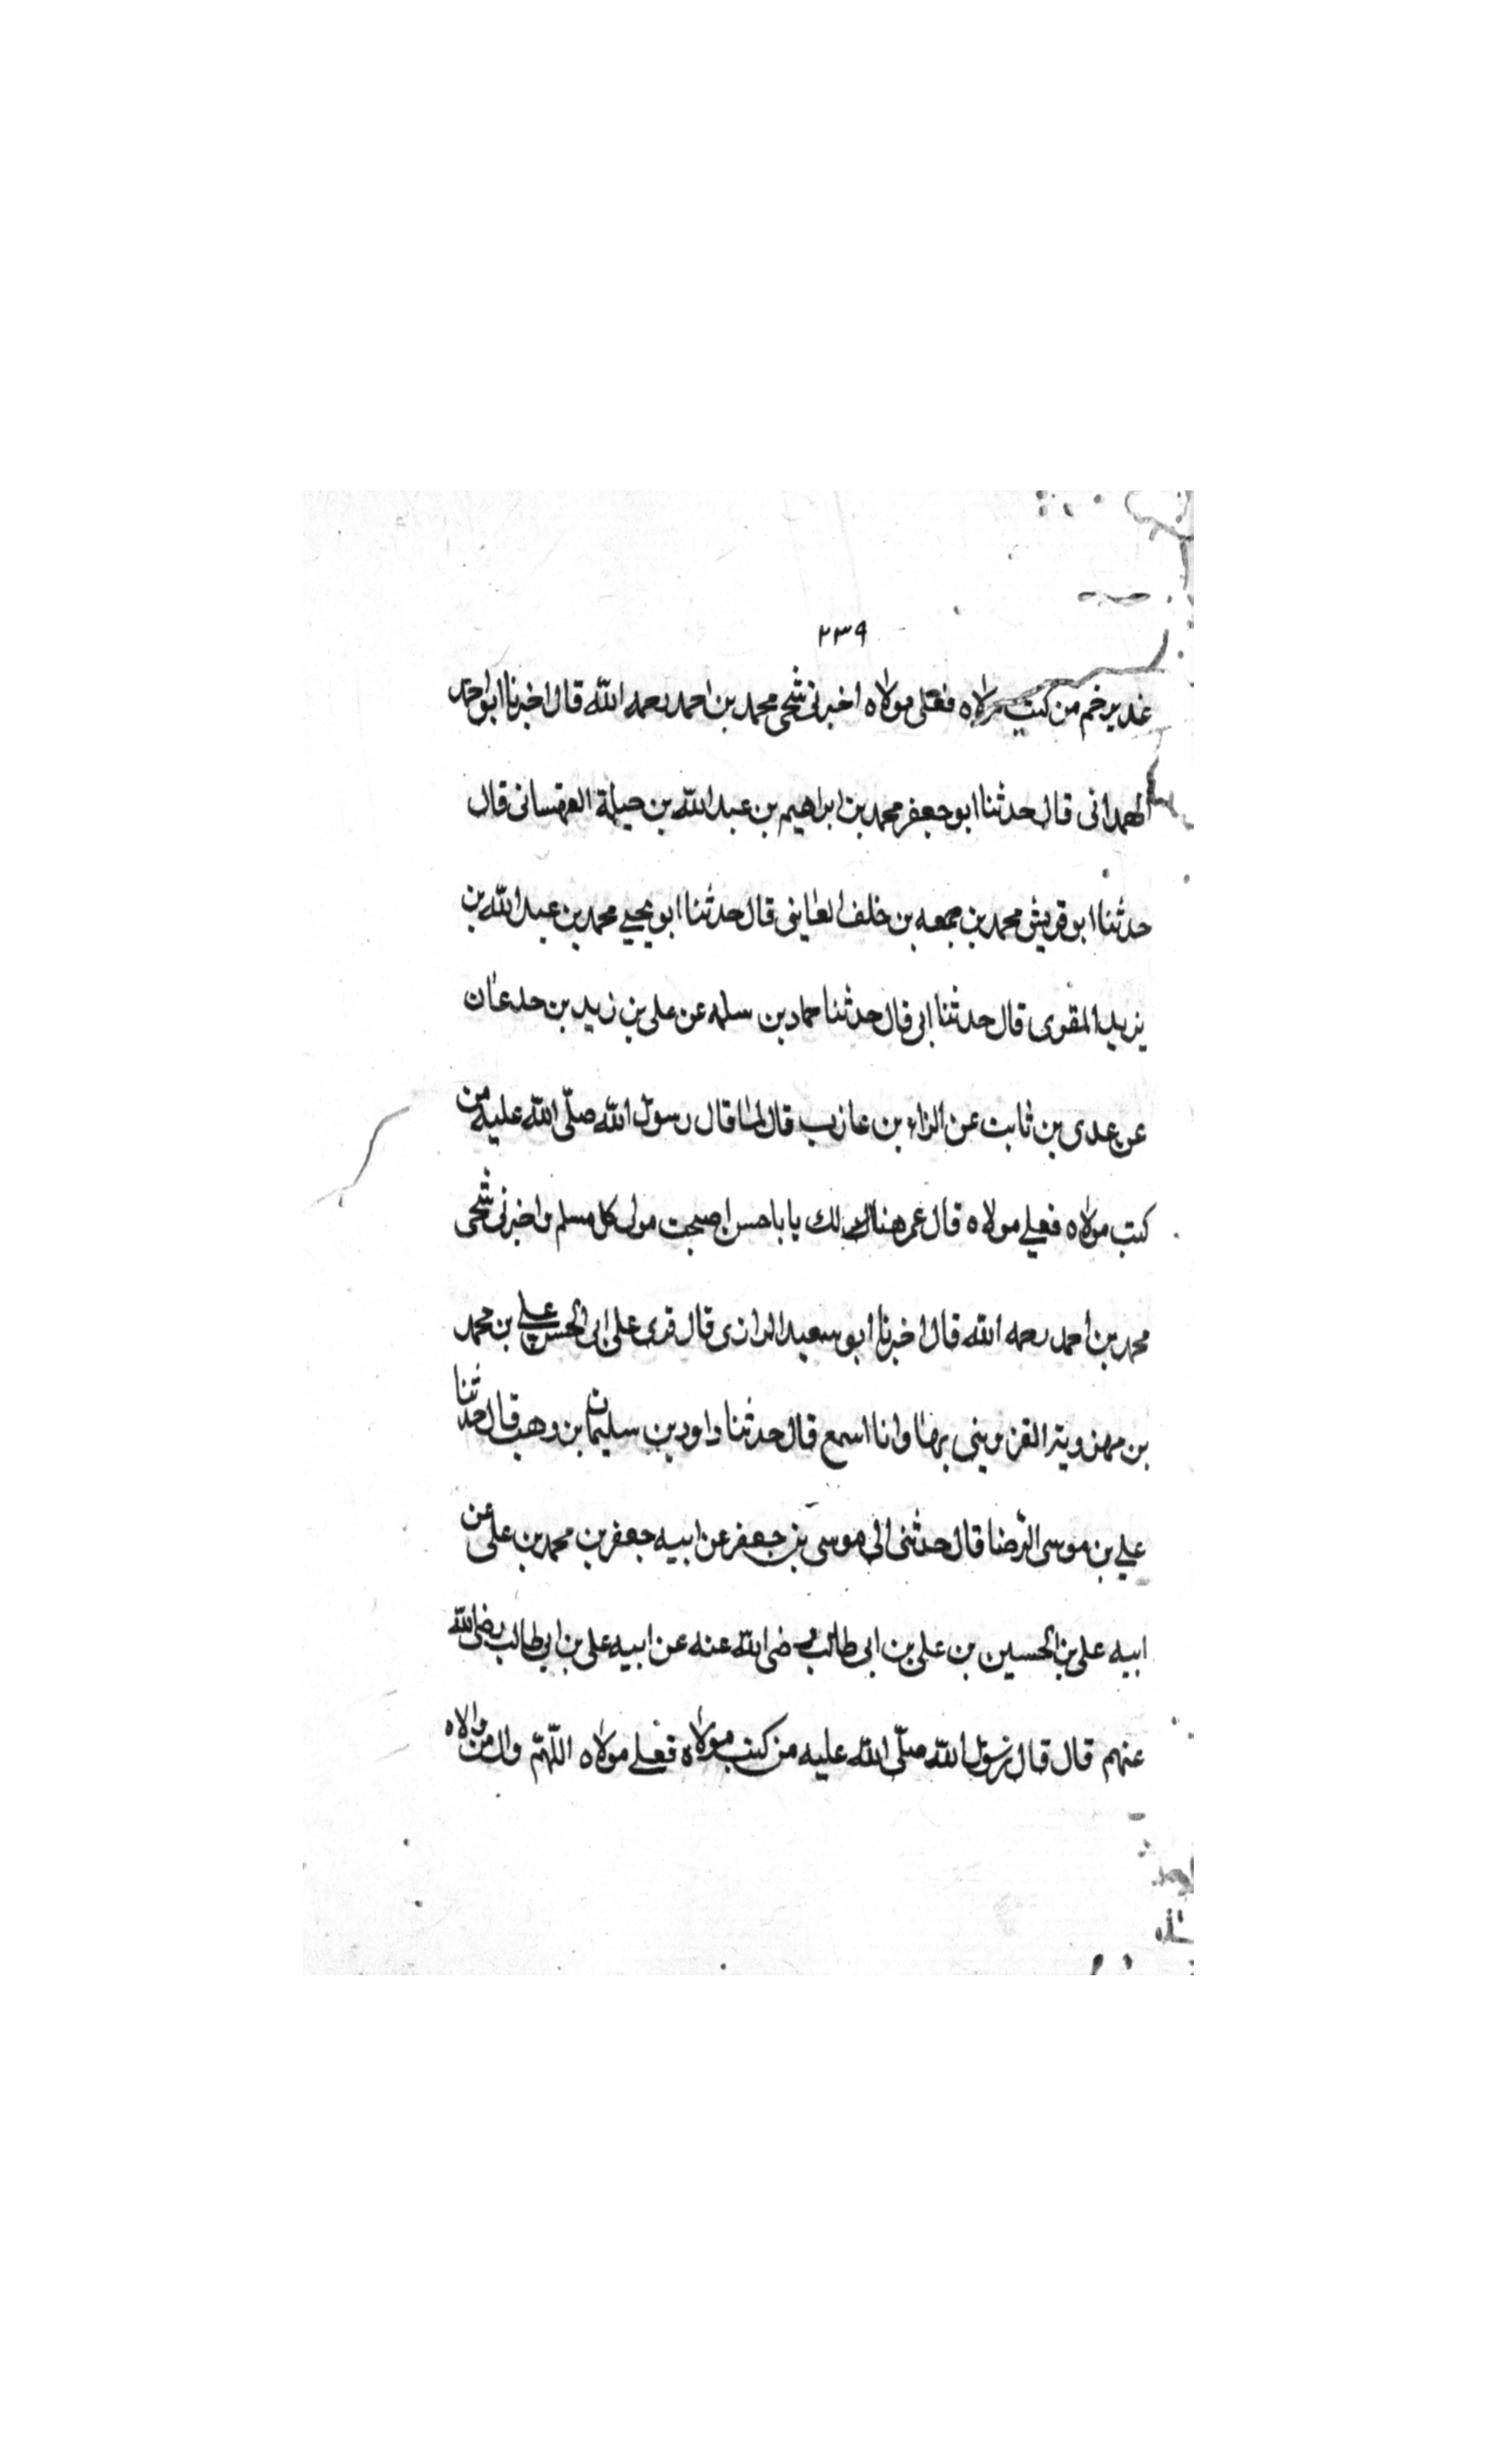 ٢٣٩
غدير خم من كنت مولاه فعلى مولاه اخبرنى شيخى محمد بن احمد رحمه الله قال اخبرنا ابو احمد
الهمدانى قال حدثنا ابو جعفر محمد بن ابراهيم بن عبد الله بن جبلة القهستانى قال
حدثنا ابو قريش محمد بن جمعه بن خلف القاينى قال حدثنا ابو يحيى محمد بن عبد الله بن
يزيد المقوى قال حدثنا ابى قال حدثنا حماد بن سلمه عن على بن زيد بن جدعان
عن عدى بن ثابت عن البراء بن عازب قال لما قال رسول الله صلّى الله عليه من
كنت مولاه فعلى مولاه قال عمر هنالك يا با حسن اصبحت مولى كل مسلم اخبرنى شيخى
محمد بن احمد رحمه الله قال اخبرنا ابو سعيد الرازى قال قرى على ابى الحسن على بن محمد
بن مهرويه القزوينى بها وانا اسمع قال حدثنا داود بن سليمان بن وهب قال حدثنا
على بن موسى الرّضا قال حدثنى ابى موسى بن جعفر عن ابيه جعفر بن محمد بن على عن
ابيه على بن الحسين بن على بن ابى طالب رضى الله عنه عن ابيه على بن ابى طالب رضى الله
عنهم قال قال رسول الله صلّى الله عليه من كنت مولاه فعلى مولاه اللّهمّ وال من والاه